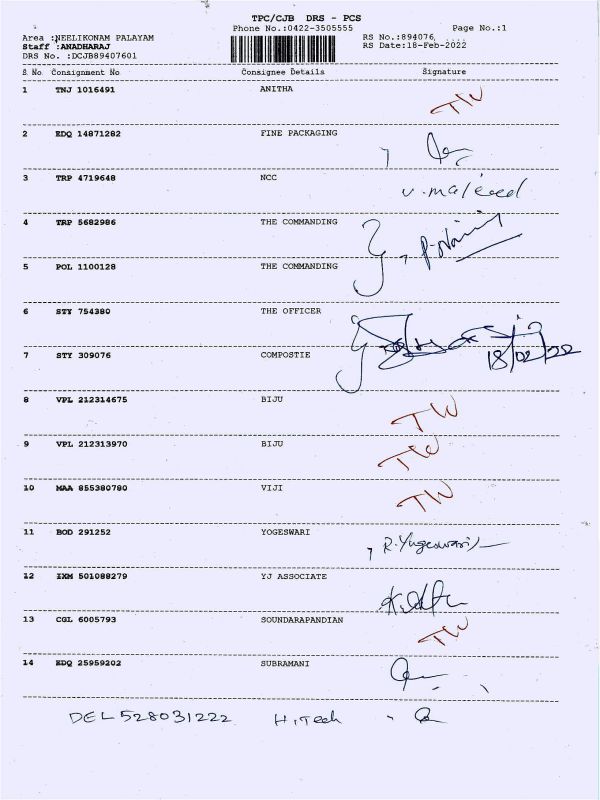 TPC/CJB DRS - PCS
Phone No.:0422-3505555 Page No.:1
Area :NEELIKONAM PALAYAM RS No.:894076
Staff :ANADHARAJ RS Date:18-Feb-2022
DRS No. :DCJB89407601
S No Consignment No Consignee Details Signature
1 TNJ 1016491 ANITHA TW
2 EDQ 14871282 FINE PACKAGING
3 TRP 4719648 NCC
4 TRP 5682986 THE COMMANDING
5 POL 1100128 THE COMMANDING
6 STY 754380 THE OFFICER
7 STY 309076 COMPOSTIE 18/02/22
8 VPL 212314675 BIJU TW
9 VPL 212313970 BIJU TW
10 MAA 855380780 VIJI TW
11 BOD 291252 YOGESWARI R.Yugeswari
12 IXM 501088279 YJ ASSOCIATE
13 CGL 6005793 SOUNDARAPANDIAN TW
14 EDQ 25959202 SUBRAMANI
DEL528031222 HiTech